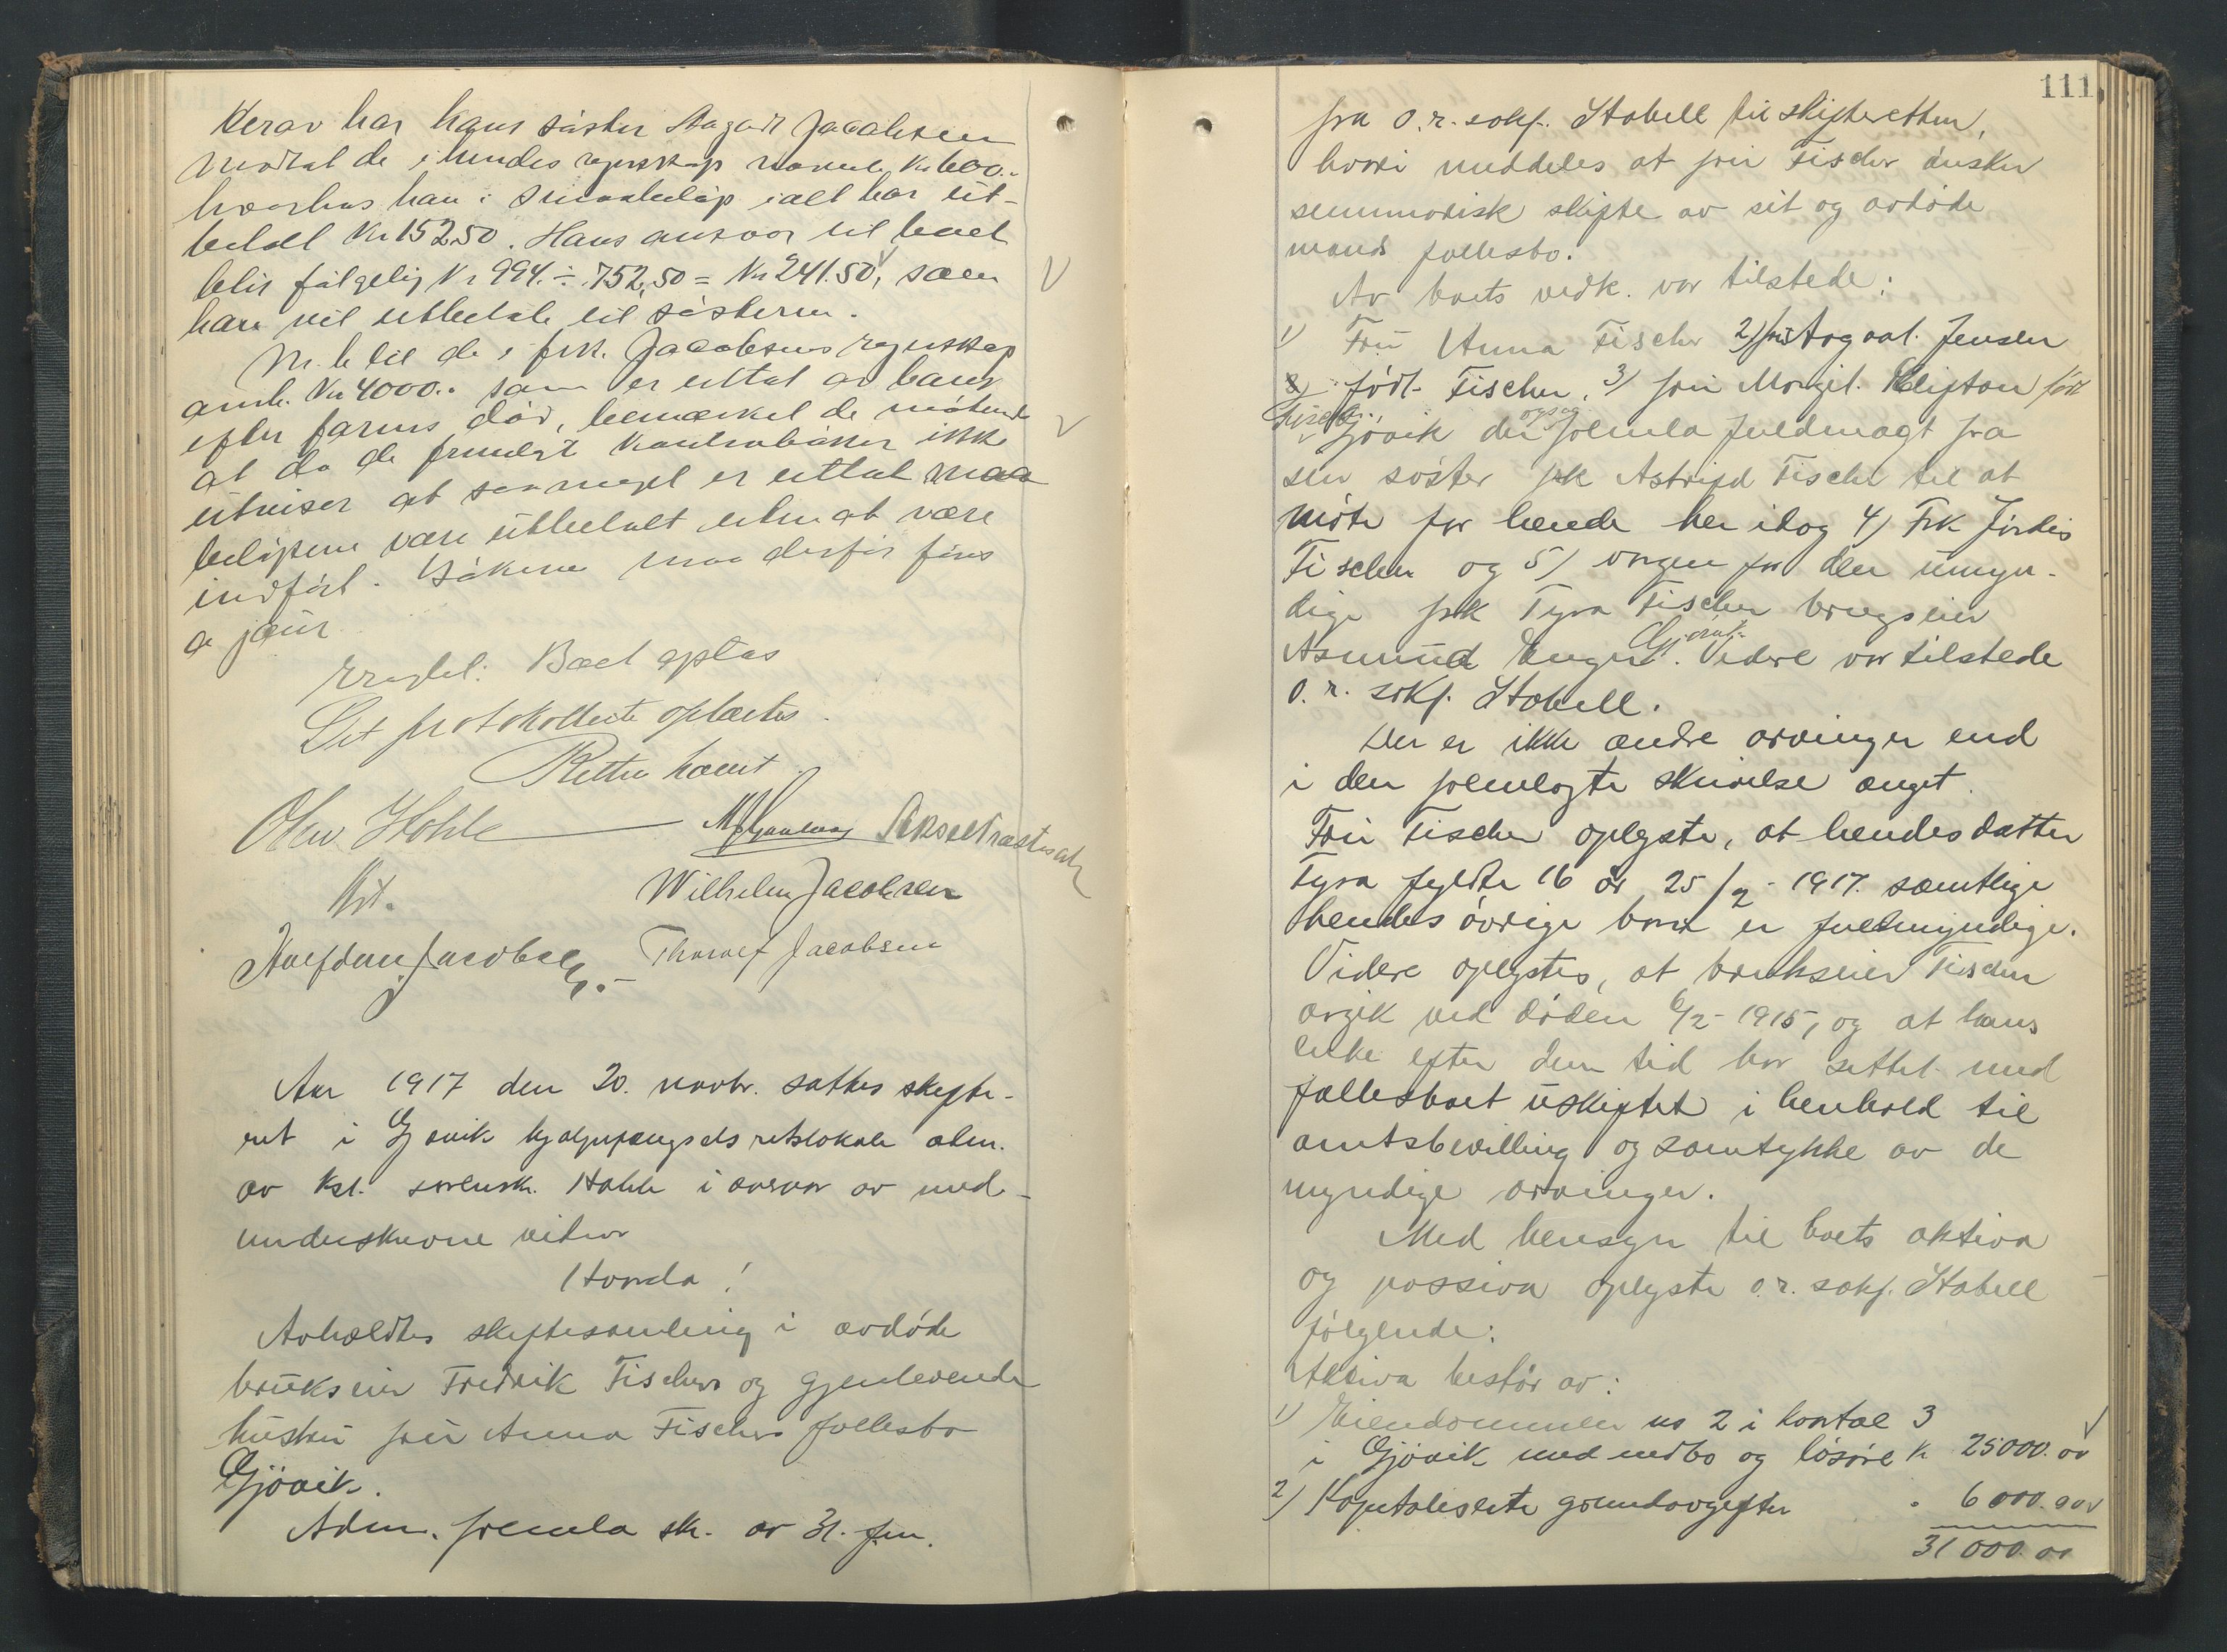 Herav har hans søster Aagodt Jacobsen
mottat de i hendes regnskap nævnte Kr 600..
hvorhos han i smaabeløp ialt har ut-
betalt Kr 152.50. Hans ansvar til boet
blir følgelig Kr 994. ÷ 752,50 = Kr 241.50, som
han vil utbetale til søsteren.
M. h. til de i frk. Jacobsens regnskap
omh. Kr 4000.. som er uttat av bank
efter farens død, bemerket de møtende
at da de fremlagt kontrabøker ikke
utviser at saa meget er uttat maa
beløpene være utbetalt uten at være
indført. Bøkene maa derfor føres
a jour
Eragtet: Boet optas
Det protokollerte oplæstes.
Retten hævet
Olav Hohle
Kst.
Aksel Trættesad
Wilhelm Jacobsen
Halfdan Jacobsen.-
Thoralf Jacobsen
Aar 1917 den 20. novbr. sattes skifte-
ret i Gjøvik hjelpefængsels retslokale adm.
av kst. sorensk. Hohle i overvær av med-
underskrevne vitner
Hvorda!
Avholdtes skiftesamling i avdøde
brukseier Fredrik Fischers og gjenlevende
hustru fru Anna Fischers fællesbo
Gjøvik.
Adm. fremla sk. av 31. f.m.
111
fra o.r.sakf. Stabell til skifteretten,
hvori meddeles at fru Fischer ønsker
summarisk skifte av sit og avdøde
mands fællesbo.
Av boets vedk. var tilstede:
1) Fru Anna Fischer 2) fru Aagoal. Jensen
født Fischer, 3) fru Margit Klifton født
Fischer,
Gjøvik der også fremla fuldmagt fra
sin søster frk Astrid Fischer til at
møte for hende her idag 4) Frk Jørdis
Fischer og 5) vergen for den umyn-
dige frk Tyra Fischer brugseier
Asmund Enger Gjøvik. Videre var tilstede
o.r. sakf. Stabell.
Der er ikke andre arvinger end
i den fremlagte skrivelse anget.
Fru Fischer oplyste, at hendes datter
Tyra fyldte 16 år 25/2 - 1917. samtlige
hendes øvrige barn er fuldmyndige.
Videre oplystes, at brukseier Fischer
avgik ved døden 6/2 - 1915, og at hans
enke efter den tid har sittet med
fællesboet uskiftet i henhold til
amtsbevilling og samtykke av de
myndige arvinger.
Med hensyn til boets aktiva
og passiva oplyste o.r. sakf. Stabell
følgende:
Aktiva består av:
1) Eiendommen no 2 i kvartal 3
i Gjøvik med indbo og løsøre k 25000.00
2) Kapitaliserte grundavgifter " 6000.00
31 000.00